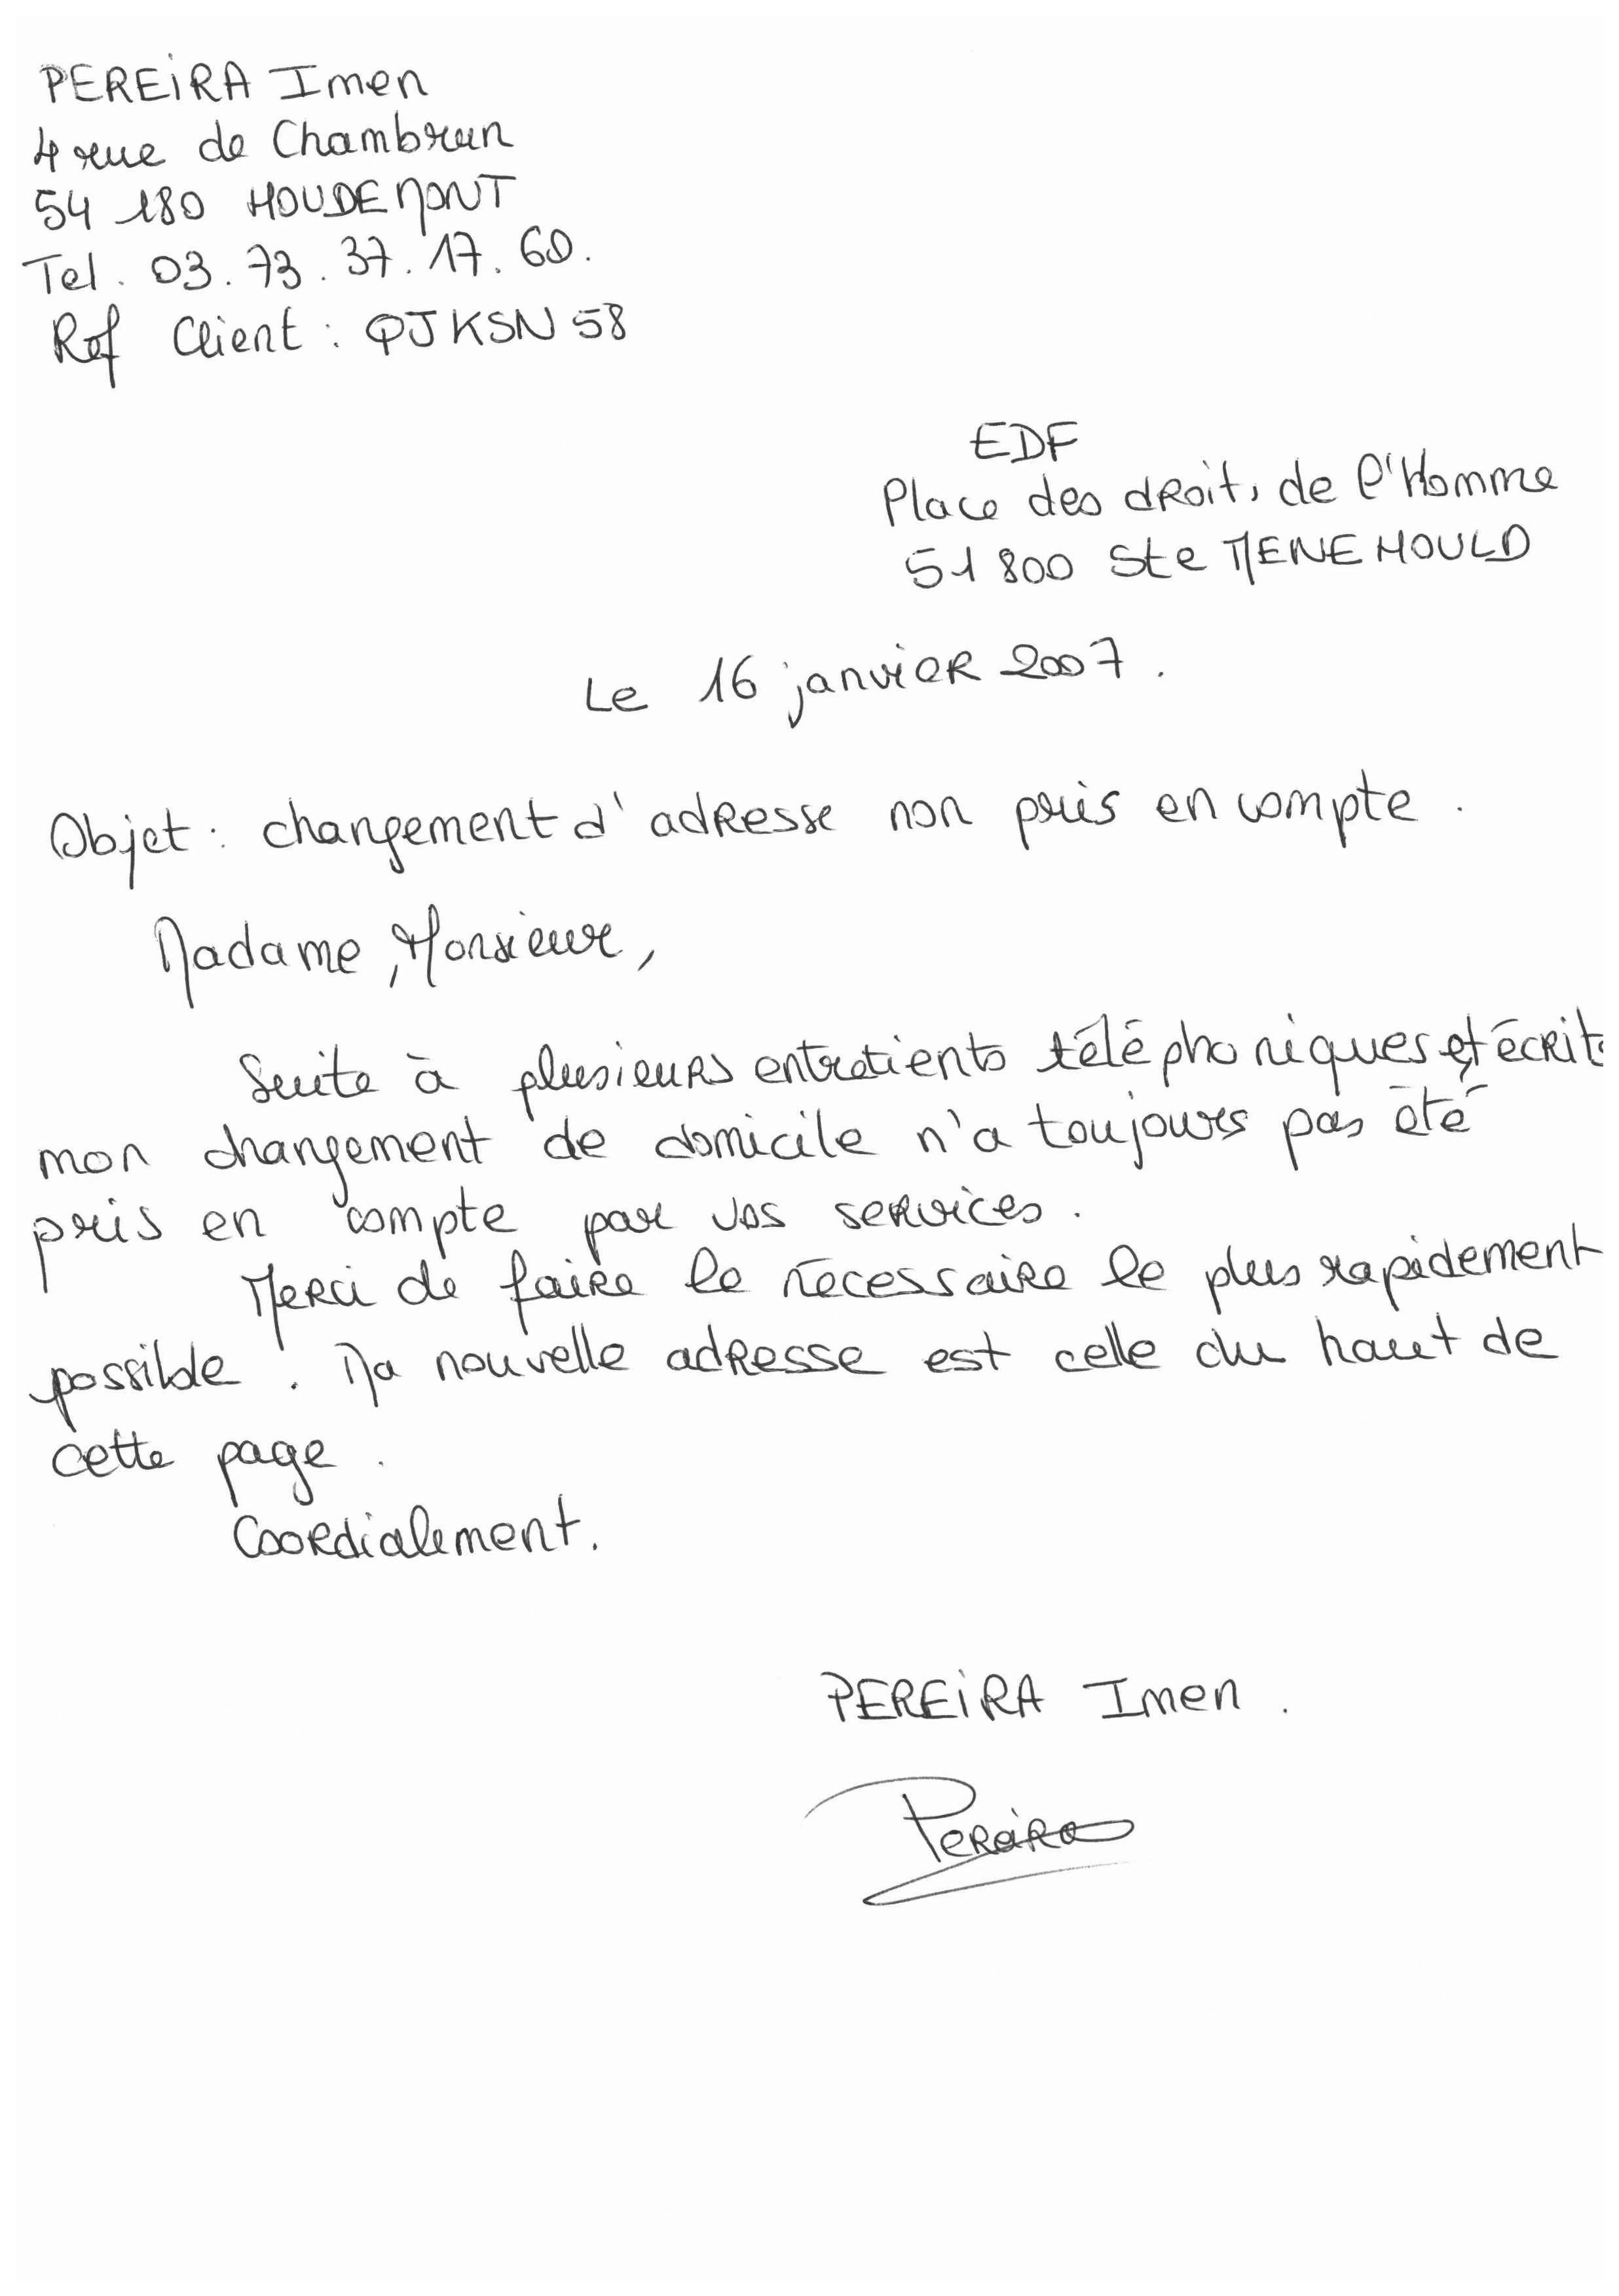 PEREIRA Imen
4 rue de Chambrun
54 180 HOUDEMONT
Tel. 03.73.37.17.60.
Ref Client : QJKSN58
EDF
Place des droits de l'Homme
51 800 Ste MENEHOULD
Le 16 janvier 2007.
Objet : changement d'adresse non pris en compte.
Madame, Monsieur,
Suite à plusieurs entretients téléphoniques et écrits
mon changement de domicile n'a toujours pas été
pris en compte par vos services.
Merci de faire le nécessaire le plus rapidement
possible. Ma nouvelle adresse est celle du haut de
cette page.
Coordialement.
PEREIRA Imen.
Pereira